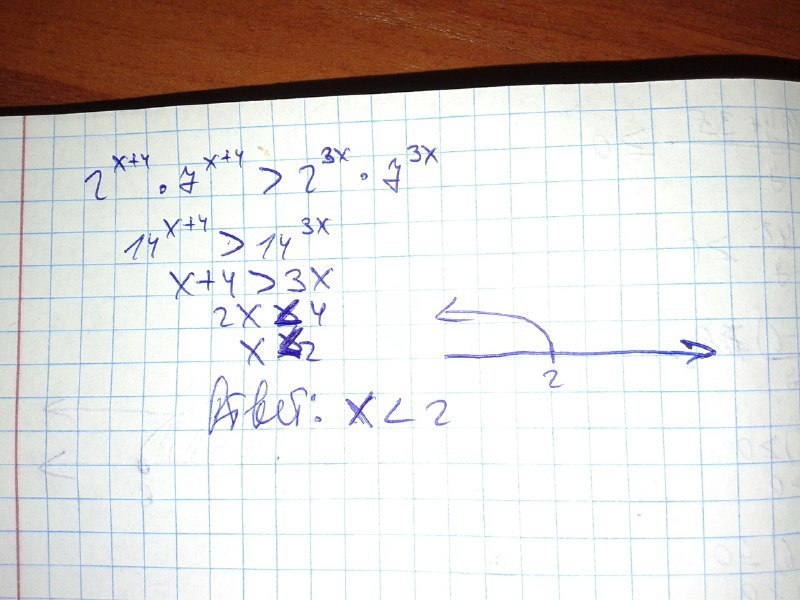 2^{x+4} · 7^{x+4} > 2^{3x} · 7^{3x}
14^{x+4} > 14^{3x}
x+4 > 3x
2x < 4
x < 2
2
Ответ: x < 2